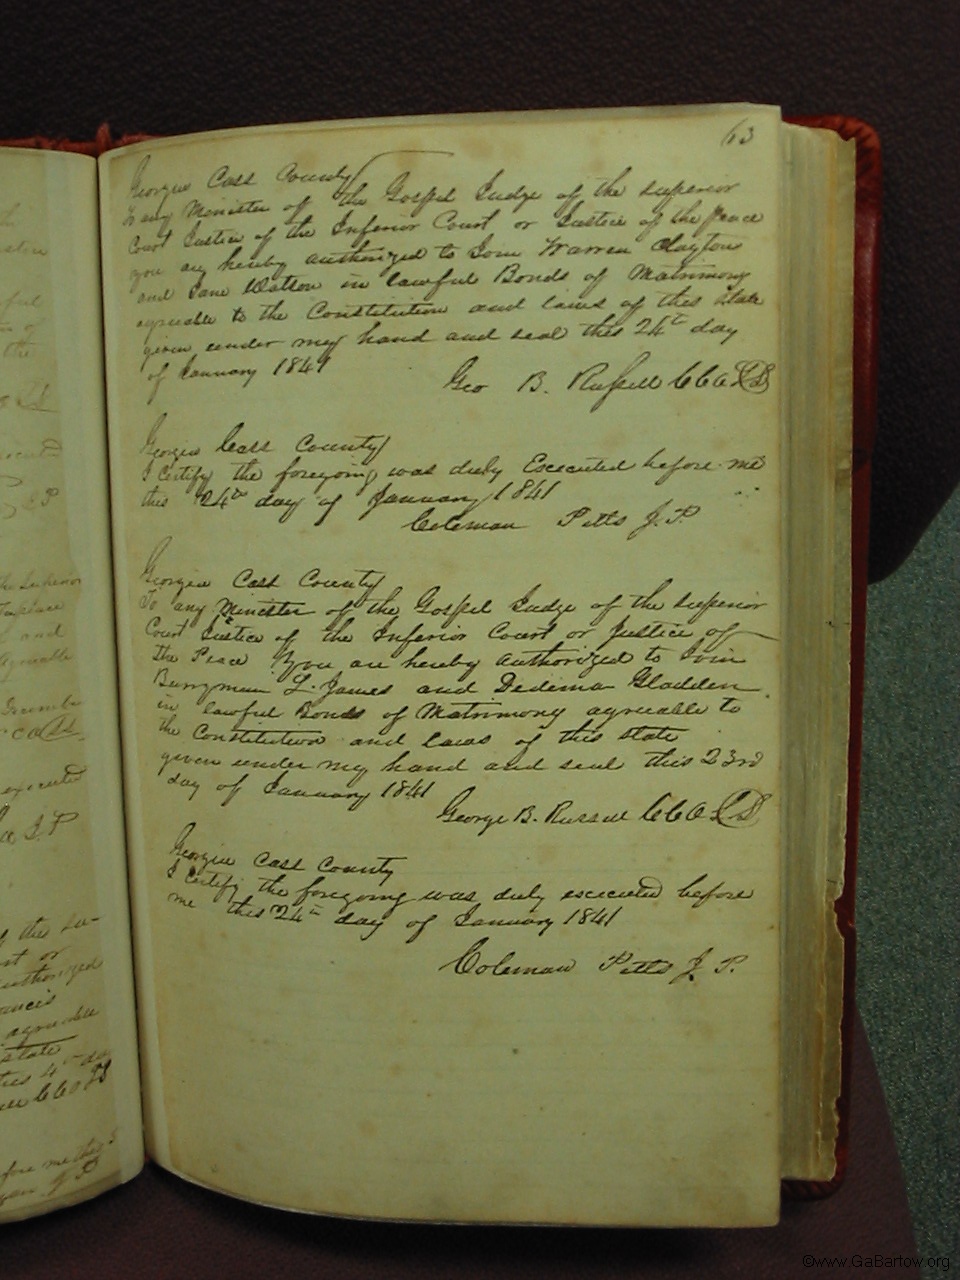 63
Georgia Cass County
To any Minister of the Gospel Judge of the Superior
Court Justice of the Inferior Court or Justice of the peace
you are hereby authorized to Join Warren Clayton
and Jane Watson in lawful Bonds of Matrimony
agreuable to the Constitution and laws of this state
given under my hand and seal this 24th day
of January 1841
Geo B. Russell CCO LS
Georgia Cass County
I Certify the foregoing was duly Executed before me
this 24th day of January 1841
Coleman Pitts J. P.
Georgia Cass County
To any Minister of the Gospel Judge of the Superior
Court Justice of the Inferior Court or Justice of
the Peace you are hereby authorized to Join
L. James and Dedema Gladden
in lawful Bonds of Matrimony agreuable to
the Constitution and laws of this state
given under my hand and seal this 23rd
day of January 1841
George B. Russell CCO LS
Georgia Cass County
I Certify the foregoing was duly executed before
me this 24th day of January 1841
Coleman Pitts J. P.
©www.GaBartow.org